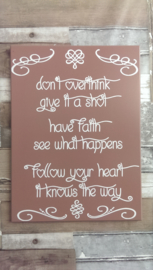 don't overthink
give it a shot
have faith
see what happens
follow your heart
it knows the way